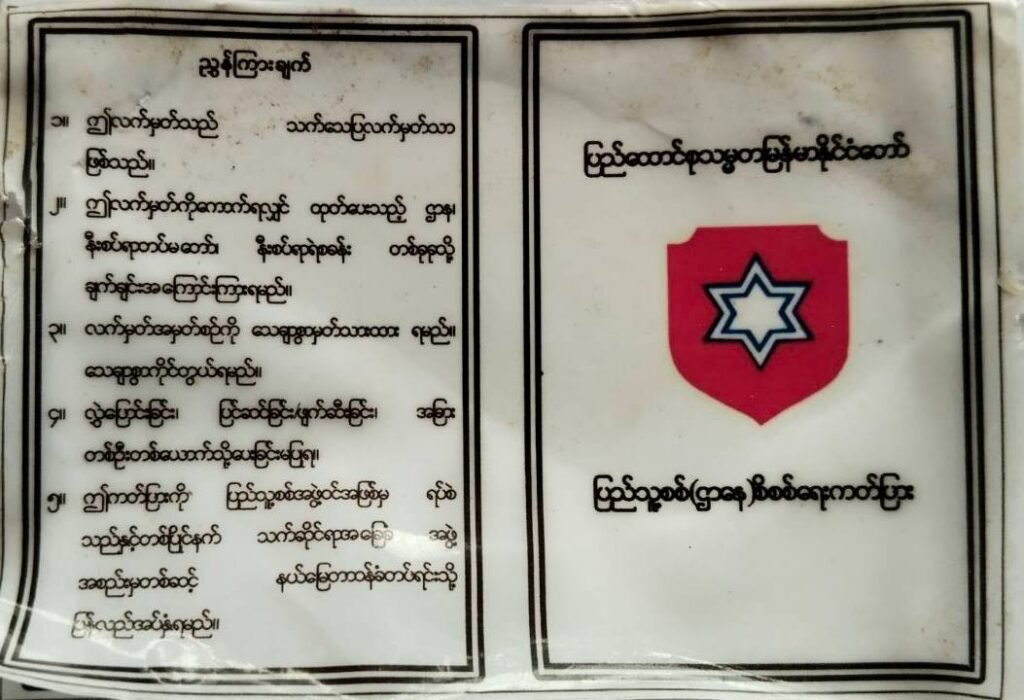 ညွှန်ကြားချက်
၁။ ဤလက်မှတ်သည် သက်သေပြလက်မှတ်သာ
ဖြစ်သည်။
၂။ ဤလက်မှတ်ကိုကောက်ရလျှင် ထုတ်ပေးသည့် ဌာန၊
နီးစပ်ရာတပ်မတော်၊ နီးစပ်ရာရဲစခန်း တစ်ခုခုသို့
ချက်ချင်းအကြောင်းကြားရမည်။
၃။ လက်မှတ်အမှတ်စဉ်ကို သေချာစွာမှတ်သားထား ရမည်။
သေချာစွာကိုင်တွယ်ရမည်။
၄။ လွှဲပြောင်းခြင်း၊ ပြင်ဆင်ခြင်း/ဖျက်ဆီးခြင်း၊ အခြား
တစ်ဦးတစ်ယောက်သို့ပေးခြင်းမပြုရ။
၅။ ဤကတ်ပြားကို ပြည်သူ့စစ်အဖွဲ့ဝင်အဖြစ်မှ ရပ်စဲ
သည်နှင့်တစ်ပြိုင်နက် သက်ဆိုင်ရာအခြေခံ အဖွဲ့
အစည်းမှတစ်ဆင့် နယ်မြေတာဝန်ခံတပ်ရင်းသို့
ပြန်လည်အပ်နှံရမည်။
ပြည်ထောင်စုသမ္မတမြန်မာနိုင်ငံတော်
ပြည်သူ့စစ်(ဌာနေ)စိစစ်ရေးကတ်ပြား